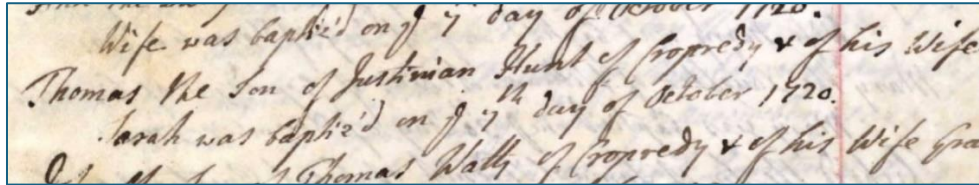 day of October 1720.
Wife was baptiz'd on ỹ 7th day of October 1720.
Thomas the Son of Justinian Hunt of Cropredy & of his Wife
Sarah was baptiz'd on ỹ 7th day of October 1720.
Thomas Watts of Cropredy & of his Wife Gra